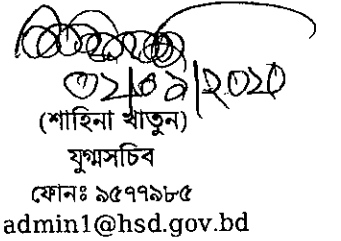 ০২|০৯|২০২০
(শাহিনা খাতুন)
যুগ্মসচিব
ফোনঃ ৯৫৭৭৯৮৫
admin1@hsd.gov.bd